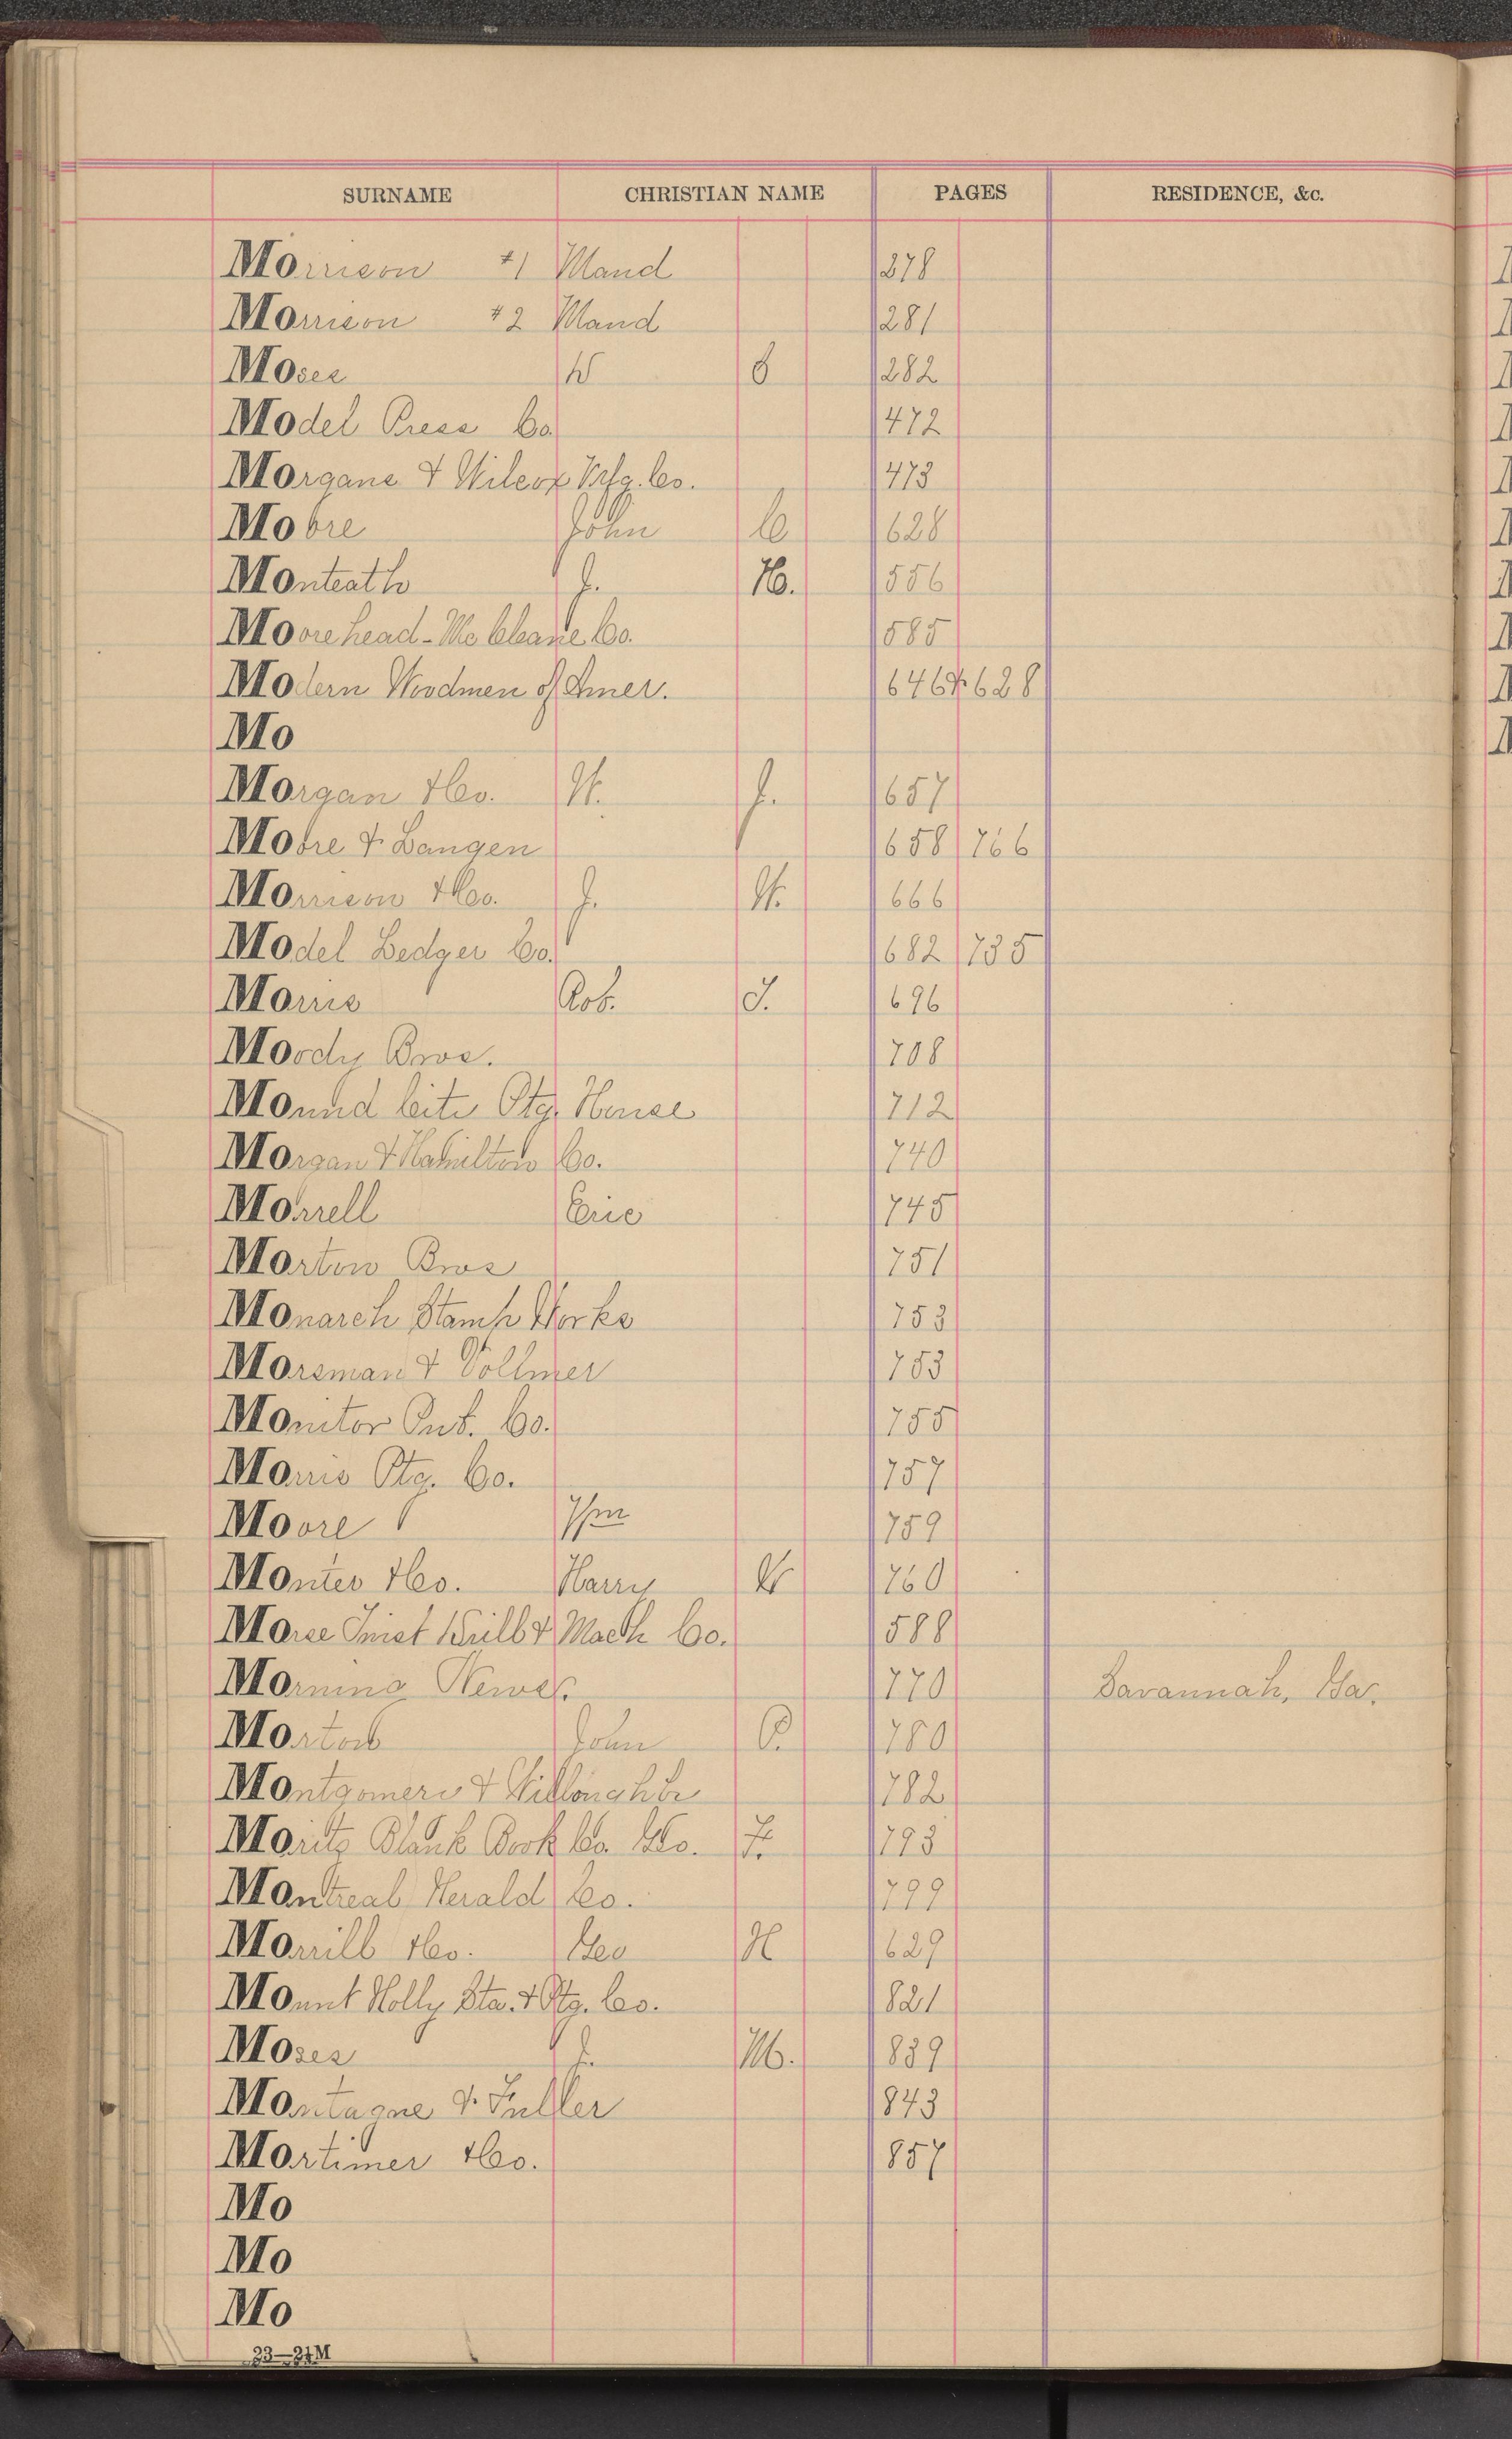 SURNAME CHRISTIAN NAME PAGES RESIDENCE, &c.
Morrison #1 Maud 278
Morrison #2 Maud 281
Moses W 282
Model Press Co 472
Morgans & Wilcox Mfg. Co. 473
Moore John C 628
Monteath J. H. 556
Moorehead-McCleane Co. 585
Modern Woodmen of Amer. 646 & 628
Mo
Morgan &Co. W. J. 657
Moore & Langen 658 766
Morrison &Co. J. W. 666
Model Ledger Co. 682 735
Morris Rob. J. 696
Moody Bros. 708
Mound City Ptg. House 712
Morgan & Hamilton Co. 740
Morrell Eric 745
Morton Bros 751
Monarch Stamp Works 753
Morsman & Vollmer 753
Monitor Pub. Co. 755
Morris Ptg. Co. 757
Moore Wm 759
Monter &Co. Harry 760
Morse Twist Drill & Mach Co. 588
Morning News. 770 Savannah, Ga.
Morton John P. 780
Montgomery & Willoughby 782
Moritz Blank Book Co. &Co. F. 793
Montreal Herald Co. 799
Morrill &Co. Geo H 629
Mount Holly Sta. & Ptg. Co. 821
Moses J. M. 839
Montague & Fuller 843
Mortimer &Co. 857
Mo
Mo
Mo
23—24M